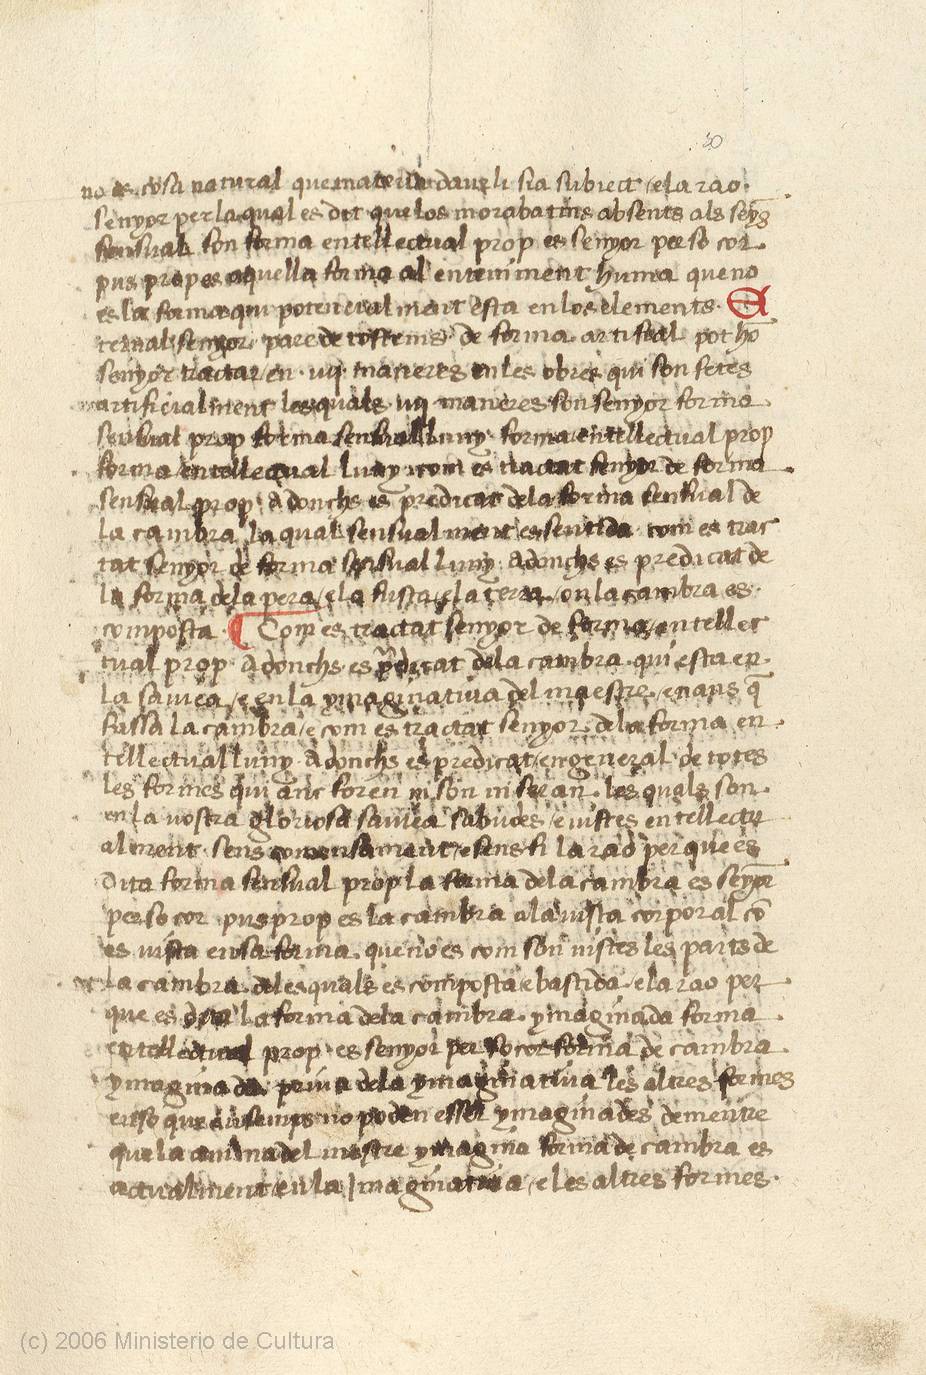 50
no es cosa natural que materia daveli sia subiect / e la rao.
senyor per la qual es dit que los morabatins absents als seyς
sensual son forma entellectual prop es senyor per so cor.
pus prop es aquella forma al enteniment huma que no
es la forma qui potencialment esta en los elements. E
ternal senyor pare de tostemps de forma artificial pot hō
senyor tractar en .iiij. maneres en les obres qui son fetes
artificialment les quals .iiij. maneres son senyor forma
sensual prop forma sensual luny. forma entellectual prop
forma entellectual luny com es tractat senyor de forma
sensual prop. adonchs es predicat de la forma sensual de
la cambra la qual sensualment es sentida com es trac
tat senyor de forma sensual luny. adonchs es predicat de
la forma de la pera / e la fusta / e la terra / on la cambra es
composta. Com es tractat senyor de forma entellec
tual prop. adonchs es p̄dicat de la cambra qui esta en
la saviea / e en la ymaginativa del maestre / enans q̄
fassa la cambra / e com es tractat senyor de la forma en
tellectual luny. adonchs es predicat en general de totes
les formes qui anc foren ni son ni seran. les quals son
en la vostra gloriosa saviea sabudes / e vistes entellectu
alment sens comensament / e sens fi la rao per que es
Dita forma sensual prop la forma de la cambra es seyor
per so cor pus prop es la cambra a la vista corporal cō
es vista en sa forma que no es com son vistes les parts de
la cambra de les quals es composta e bastida / e la rao per
que es dita la forma de la cambra ymaginada forma
entellectual prop. es senyor per so cor forma de cambra
ymaginada priva de la ymaginativa les altres formes
en so que ensemps no poden esser ymaginades dementre
que la anima del mestre ymagina forma de cambra es
actualment en la Imaginativa / e les altres formes.
(c) 2006 Ministerio de Cultura